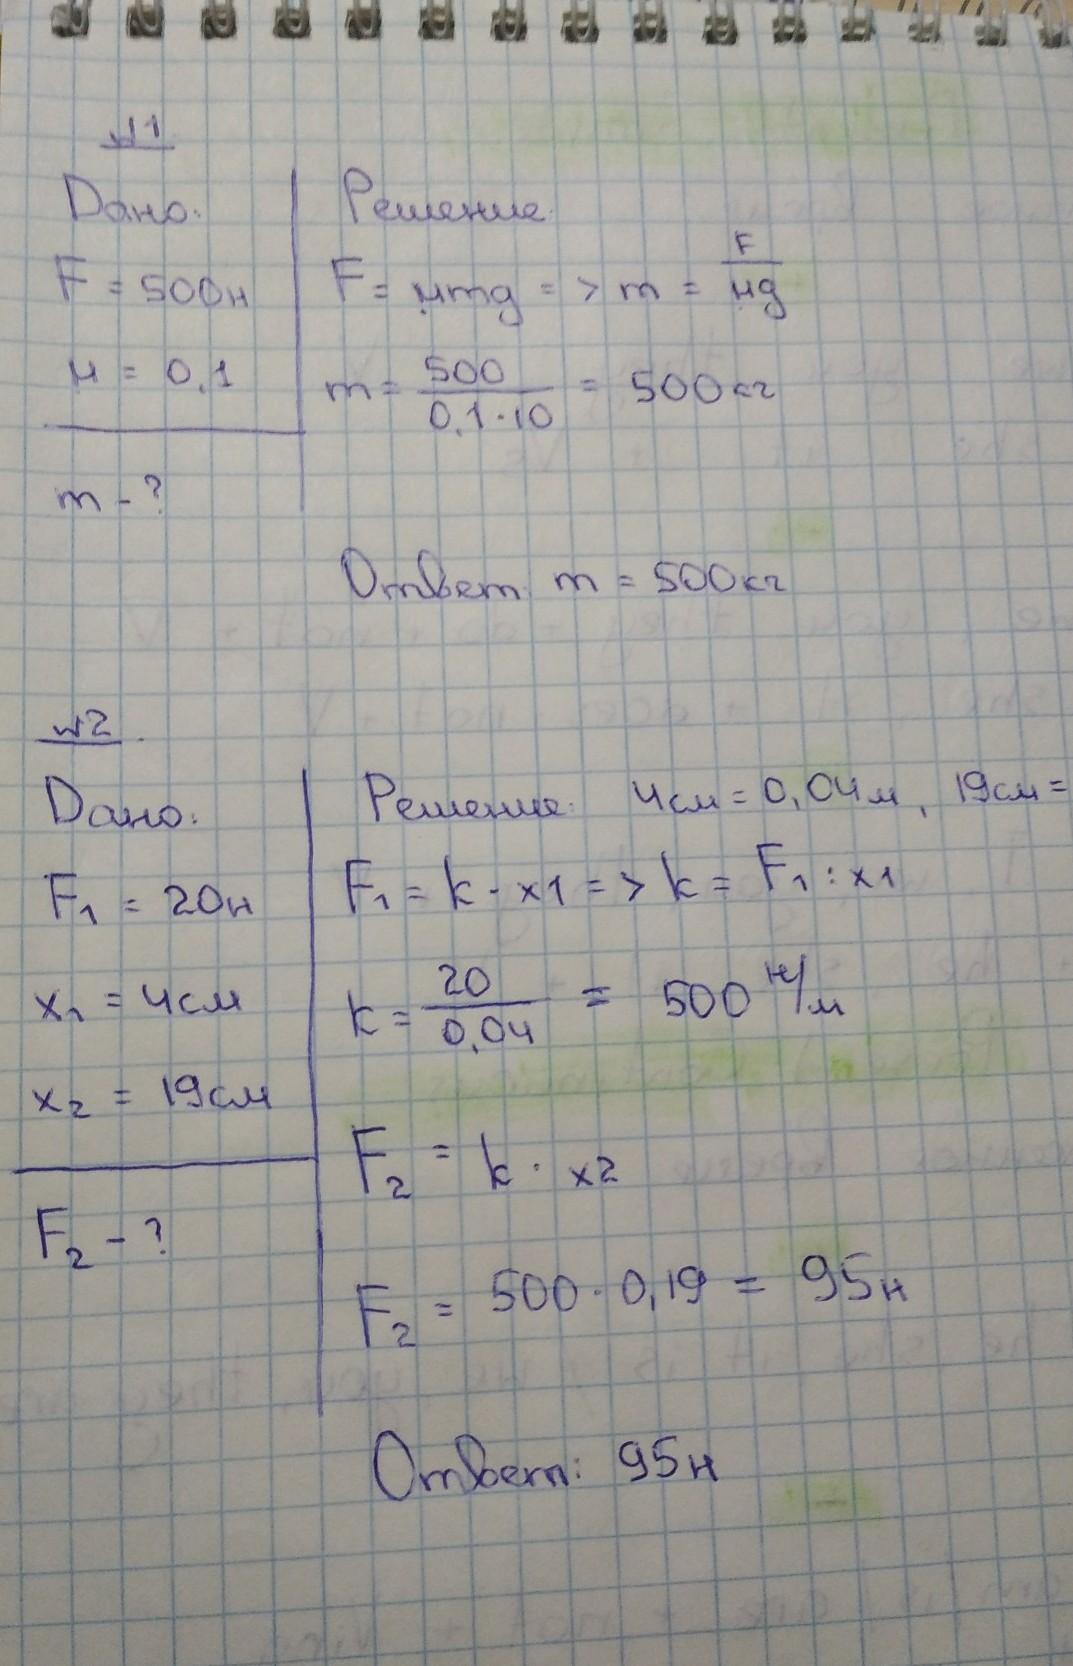 №1
Дано:
F = 500н
μ = 0,1
m - ?
Решение:
F = μmg => m = F/μg
m = 500/0,1·10 = 500кг
Ответ: m = 500кг
№2
Дано:
F₁ = 20н
x₁ = 4см
x₂ = 19см
F₂ - ?
Решение: 4см = 0,04м, 19см =
F₁ = k · x1 => k = F₁ : x1
k = 20/0,04 = 500 н/м
F₂ = k · x2
F₂ = 500 · 0,19 = 95н
Ответ: 95н